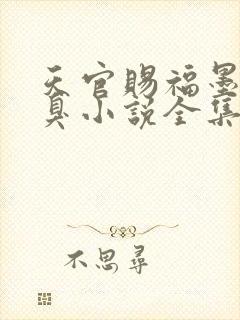 天官赐福墨
臭小说全集
不思寻